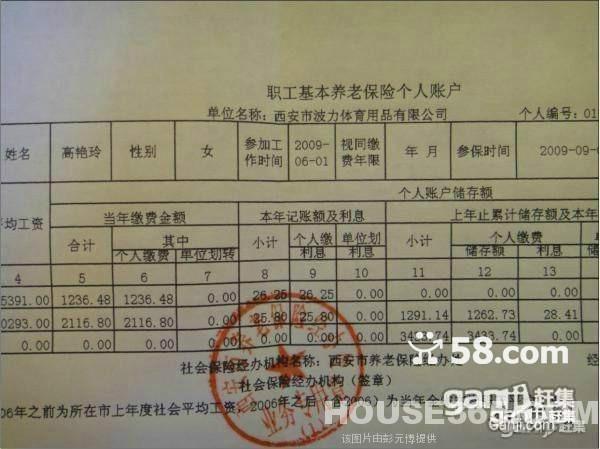 职工基本养老保险个人账户
单位名称：西安市波力体育用品有限公司 个人编号：01
姓名 高艳玲 性别 女 参加工作时间 2009-06-01 视同缴费年限 年 月 参保时间 2009-09-0
个人账户储存额
平均工资 当年缴费金额 本年记账额及利息 上年止累计储存额及本年
合计 其中 小计 个人缴利息 单位划利息 小计 个人缴费
个人缴费 单位划转 储存额 利息
4 5 6 7 8 9 10 11 12 13
5391.00 1236.48 1236.48 0.00 26.25 26.25 0.00 0.00 0.00 0.00
0293.00 2116.80 2116.80 0.00 25.80 25.80 0.00 1291.14 1262.73 28.41
0.00 0.00 0.00 0.00 0.00 0.00 0.00 3433.74 3433.74 0.00
社会保险经办机构名称：西安市养老保险经办处 经
社会保险经办机构（签章）
业务专用章
06年之前为所在市上年度社会平均工资，2006年之后（含2006）为当年
58.com
HOUSE365.COM
ganji 赶集
Ganji.com 赶集
该图片由彭元博提供